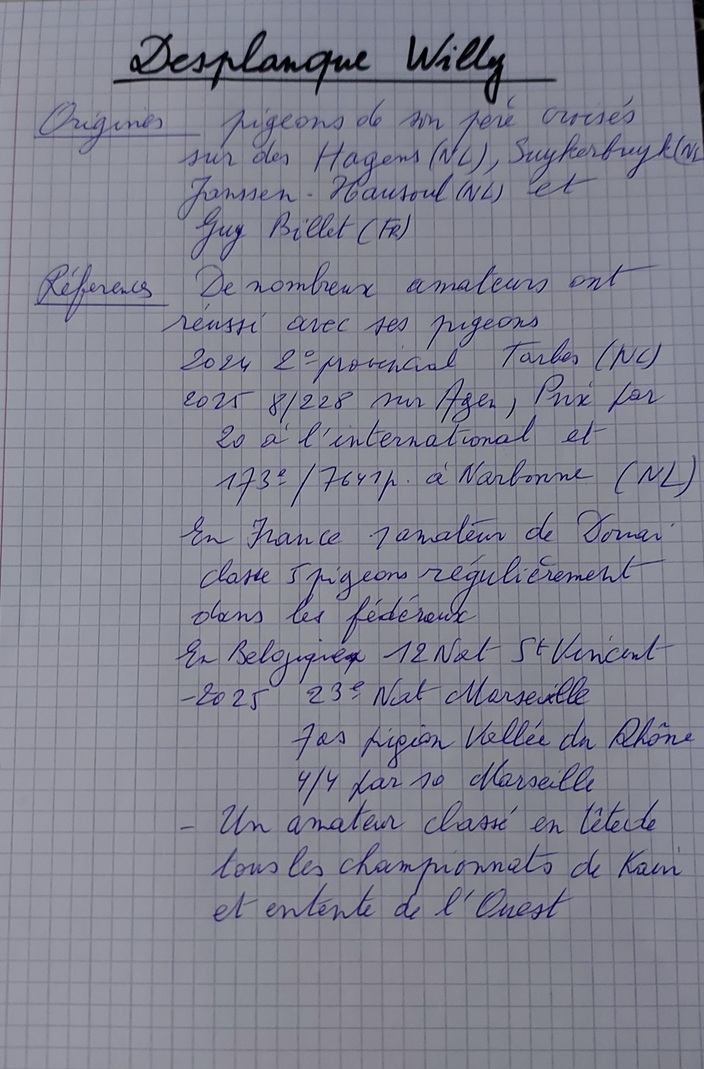 Desplanque Willy
Origines pigeons de son père croisés
sur des Hagens (NL), Suykerbuyk (NL
Janssen - Hausoul (NL) et
Guy Billet (FR)
Réferences De nombreux amateurs ont
réussi avec ses pigeons
2024 2e provincial Tarbes (NL)
2025 8/228 sur Agen, Prix par
20 à l'international et
173e/7641p. à Narbonne (NL)
En France 1 amateur de Douai
classe 5 pigeons régulièrement
dans les fédéraux
En Belgique 12 Nat St Vincent
-2025 23e Nat Marseille
7 as pigion Vallée du Rhône
4/4 par 10 Marseille
- Un amateur classé en tête de
tous les championnats de Kain
et entente de l'Ouest